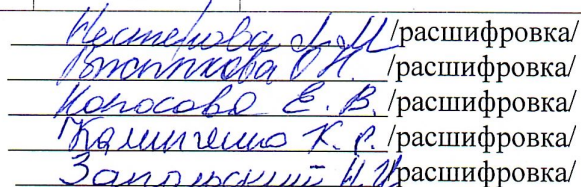 Нестерова А.М /расшифровка/
О.Н. /расшифровка/
Колосова Е. В. /расшифровка/
К. Р. /расшифровка/
Запольский Н.И /расшифровка/